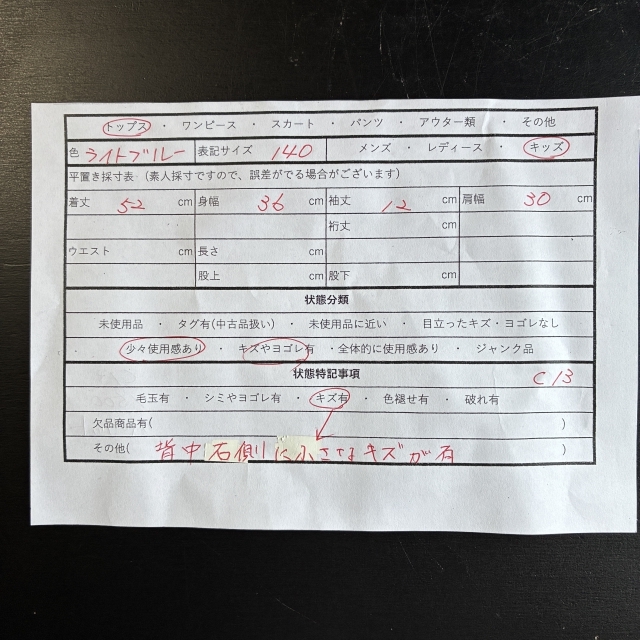 トップス ・ ワンピース ・ スカート ・ パンツ ・ アウター類 ・ その他
色 ライトブルー 表記サイズ 140 メンズ ・ レディース ・ キッズ
平置き採寸表 (素人採寸ですので、誤差がでる場合がございます)
着丈 52 cm 身幅 36 cm 袖丈 12 cm 肩幅 30 cm
裄丈 cm
ウエスト cm 長さ cm
股上 cm 股下 cm
状態分類
未使用品 ・ タグ有(中古品扱い) ・ 未使用品に近い ・ 目立ったキズ・ヨゴレなし
少々使用感あり ・ キズやヨゴレ有 ・全体的に使用感あり ・ ジャンク品
状態特記事項
C13
毛玉有 ・ シミやヨゴレ有 ・ キズ有 ・ 色褪せ有 ・ 破れ有
欠品商品有( )
その他( 背中右側に小さなキズが有 )